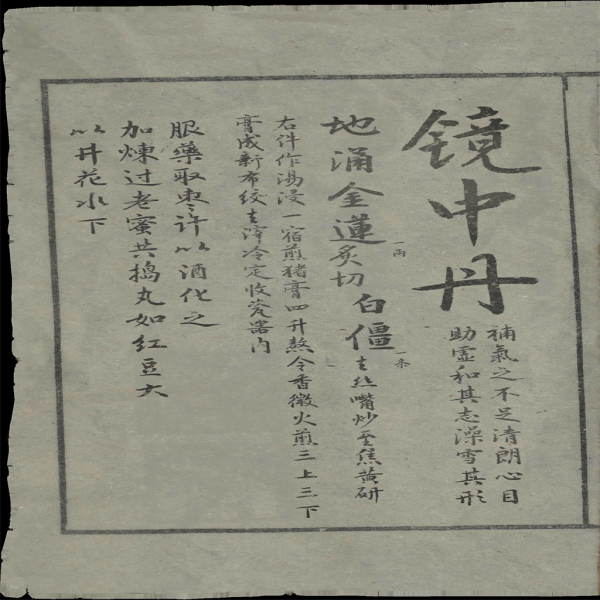 镜中丹
補氣之不足清朗心目
助虛和其志澡雪其形
地涌金蓮一兩炙切白僵一条去丝嘴炒至焦黄研
右件作湯浸一宿煎猪膏四升熬令香微火煎三上三下
膏成新布绞去滓冷定收瓷器内
服藥取枣许以酒化之
加煉过老蜜共搗丸如红豆大
以井花水下